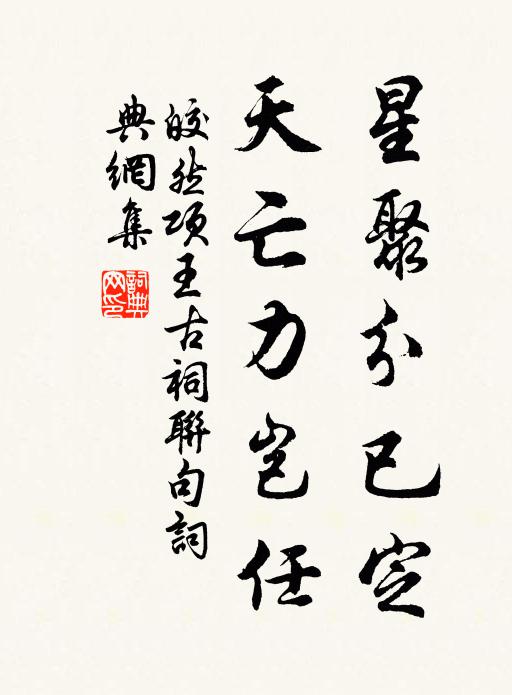 星聚分已定
天亡力豈任
皎然項王古祠聯句詞
典網集
詞典網印